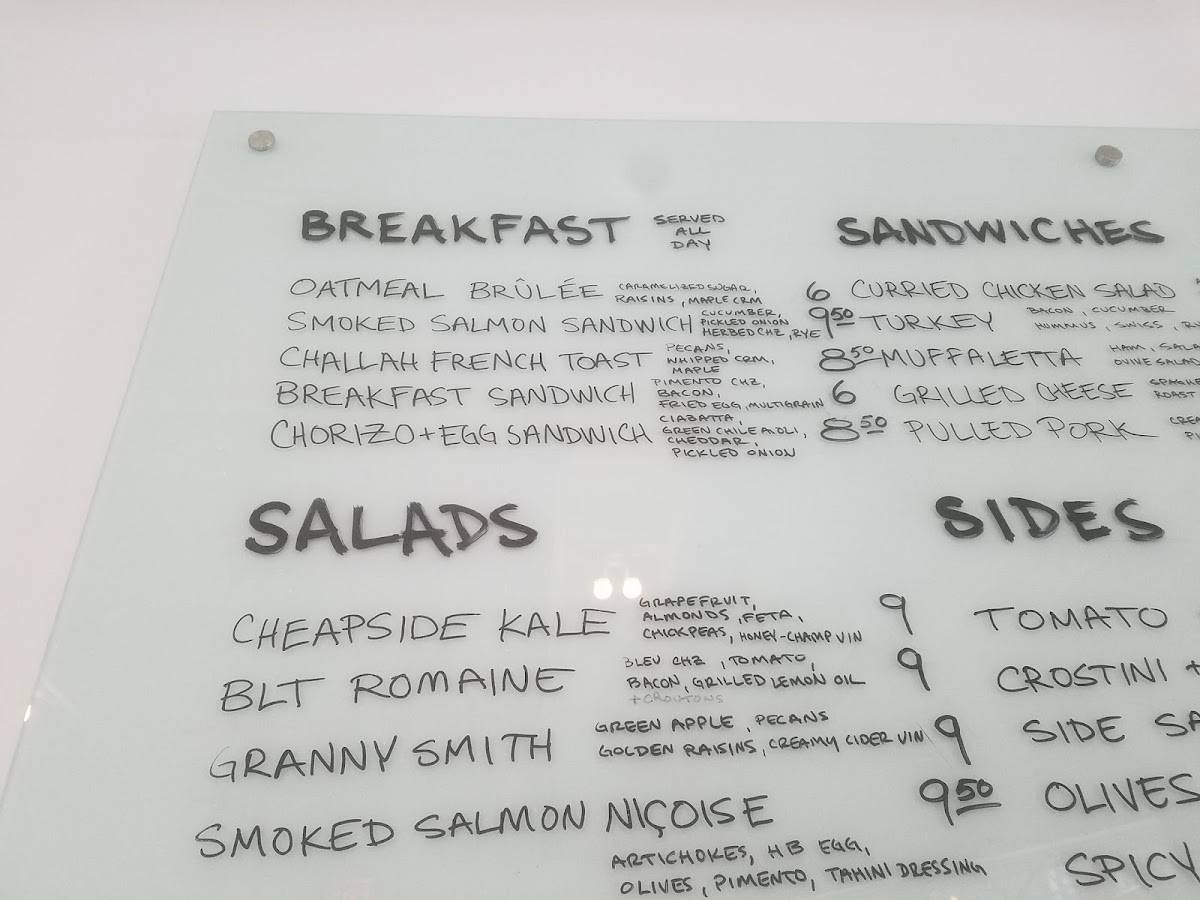 BREAKFAST SERVED ALL DAY
OATMEAL BRÛLÉE CARAMELIZED SUGAR, RAISINS, MAPLE CRM 6
SMOKED SALMON SANDWICH CUCUMBER, PICKLED ONION HERBED CHZ, RYE 9 50
CHALLAH FRENCH TOAST PECANS, WHIPPED CRM, MAPLE 8 50
BREAKFAST SANDWICH PIMENTO CHZ, BACON, FRIED EGG, MULTIGRAIN 6
CHORIZO + EGG SANDWICH CIABATTA, GREEN CHILE AIOLI, CHEDDAR, PICKLED ONION 8 50
SANDWICHES
CURRIED CHICKEN SALAD
TURKEY BACON, CUCUMBER HUMMUS, SWISS,
MUFFALETTA HAM, OLIVE SALAD
GRILLED CHEESE ROAST
PULLED PORK
SALADS
CHEAPSIDE KALE GRAPEFRUIT, ALMONDS, FETA, CHICKPEAS, HONEY-CHAMP VIN 9
BLT ROMAINE BLEU CHZ, TOMATO, BACON, GRILLED LEMON OIL + CROUTONS 9
GRANNY SMITH GREEN APPLE, PECANS GOLDEN RAISINS, CREAMY CIDER VIN 9
SMOKED SALMON NIÇOISE 9 50
ARTICHOKES, HB EGG,
OLIVES, PIMENTO, TAHINI DRESSING
SIDES
TOMATO
CROSTINI +
SIDE
OLIVES
SPICY